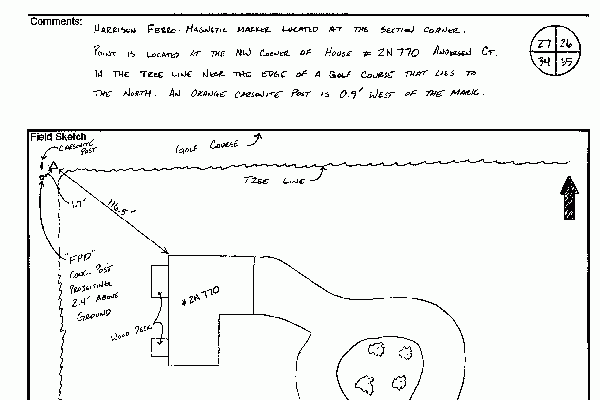 Comments:
HARRISON FERRO-MAGNETIC MARKER LOCATED AT THE SECTION CORNER.
POINT IS LOCATED AT THE NW CORNER OF HOUSE # 2N770 ANDERSEN CT.
IN THE TREE LINE NEAR THE EDGE OF A GOLF COURSE THAT LIES TO
THE NORTH. AN ORANGE CARSONITE POST IS 0.9' WEST OF THE MARK.
27 26
34 35
Field Sketch
CARSONITE
POST
GOLF COURSE
TREE LINE
1.7'
116.5'
"FPD"
CONC. POST
PROJECTING
2.4' ABOVE
GROUND
# 2N770
WOOD DECK